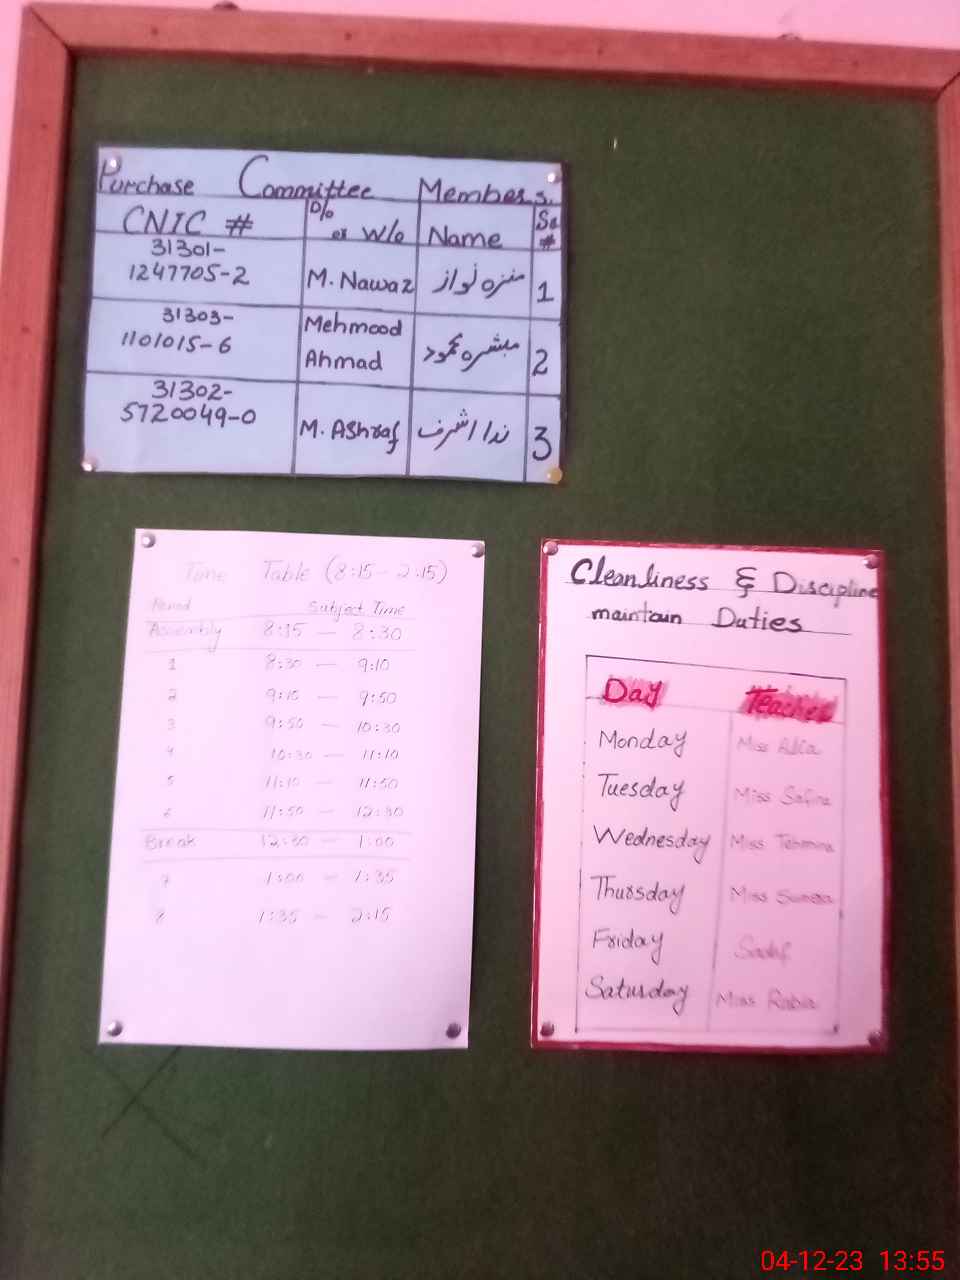 Purchase Committee Members.
CNIC # D/o or W/o Name Sr #
31301-
1247705-2 M. Nawaz منزہ نواز 1
31303-
1101015-6 Mehmood Ahmad مبشرہ محمود 2
31302-
5720049-0 M. Ashraf ندا اشرف 3
Time Table (8:15 - 2:15)
Period Subject Time
Assembly 8:15 — 8:30
1 8:30 — 9:10
2 9:10 — 9:50
3 9:50 — 10:30
4 10:30 — 11:10
5 11:10 — 11:50
6 11:50 — 12:30
Break 12:30 — 1:00
7 1:00 — 1:35
8 1:35 — 2:15
Cleanliness & Discipline
maintain Duties
Day Teacher
Monday Miss Alia
Tuesday Miss Safina
Wednesday Miss Tehmina
Thursday Miss Sumera
Friday Sadaf
Saturday Miss Rabia
04-12-23 13:55